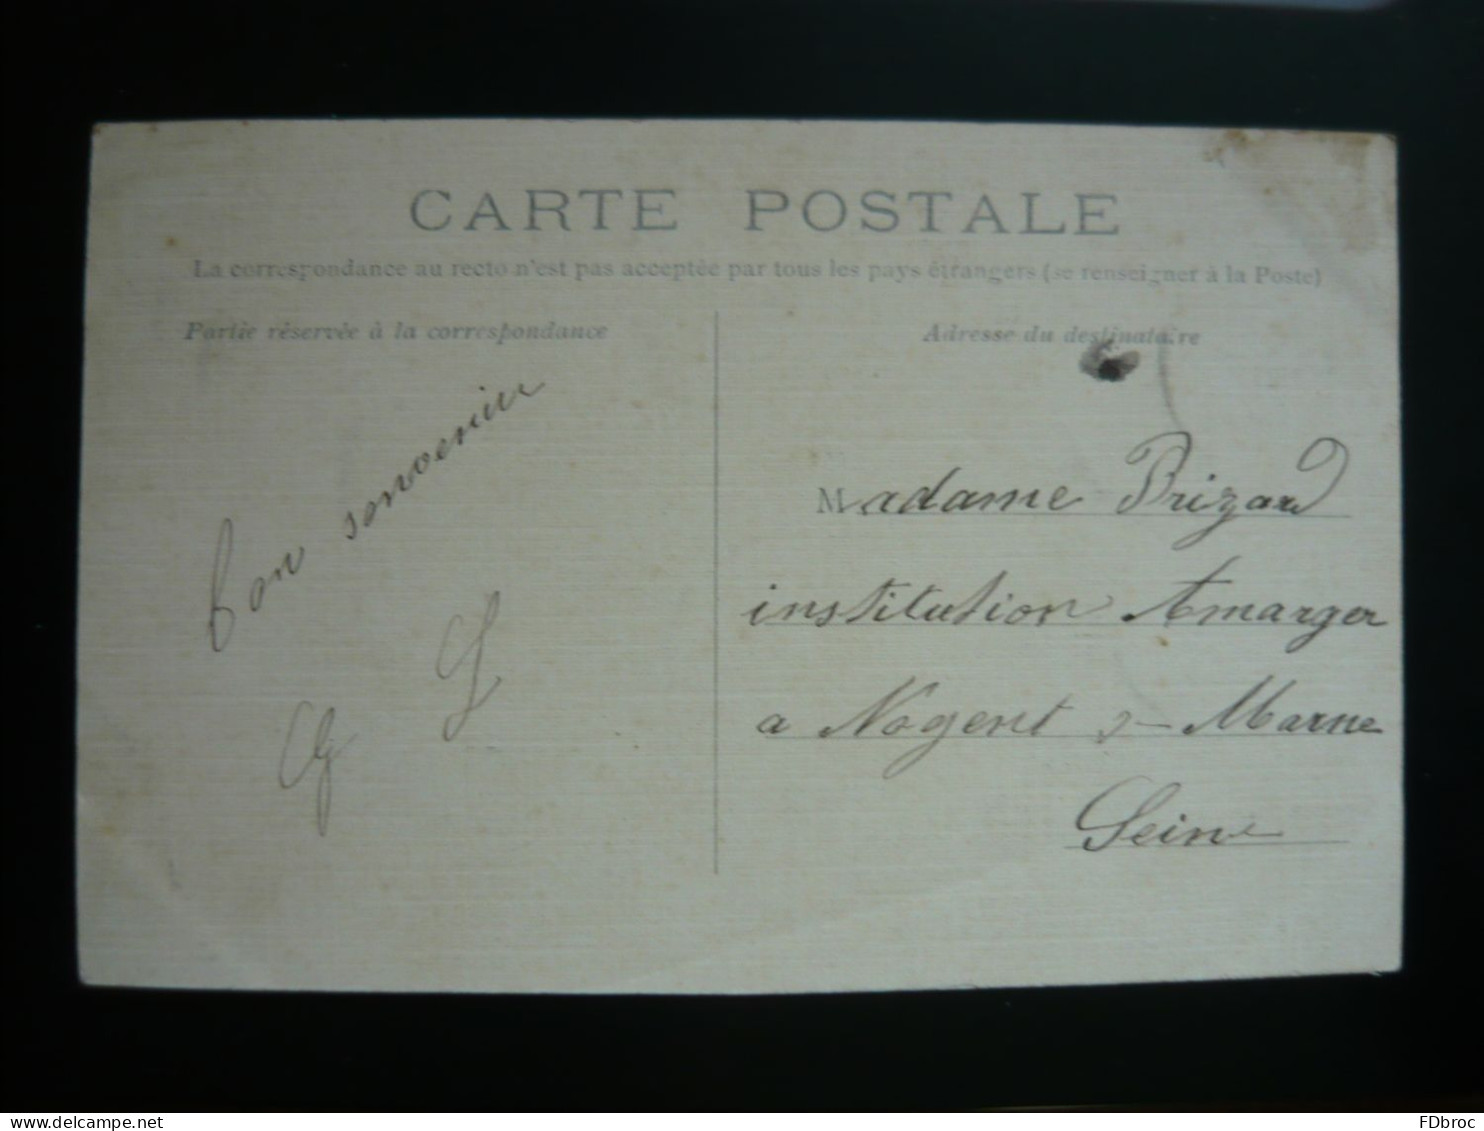 CARTE POSTALE
La correspondance au recto n'est pas acceptée par tous les pays étrangers (se renseigner à la Poste)
Partie réservée à la correspondance
Bon souvenir
Adresse du destinataire
Madame Brizard
institution Amarger
a Nogent s- Marne
Seine
www.delcampe.net
FDbroc